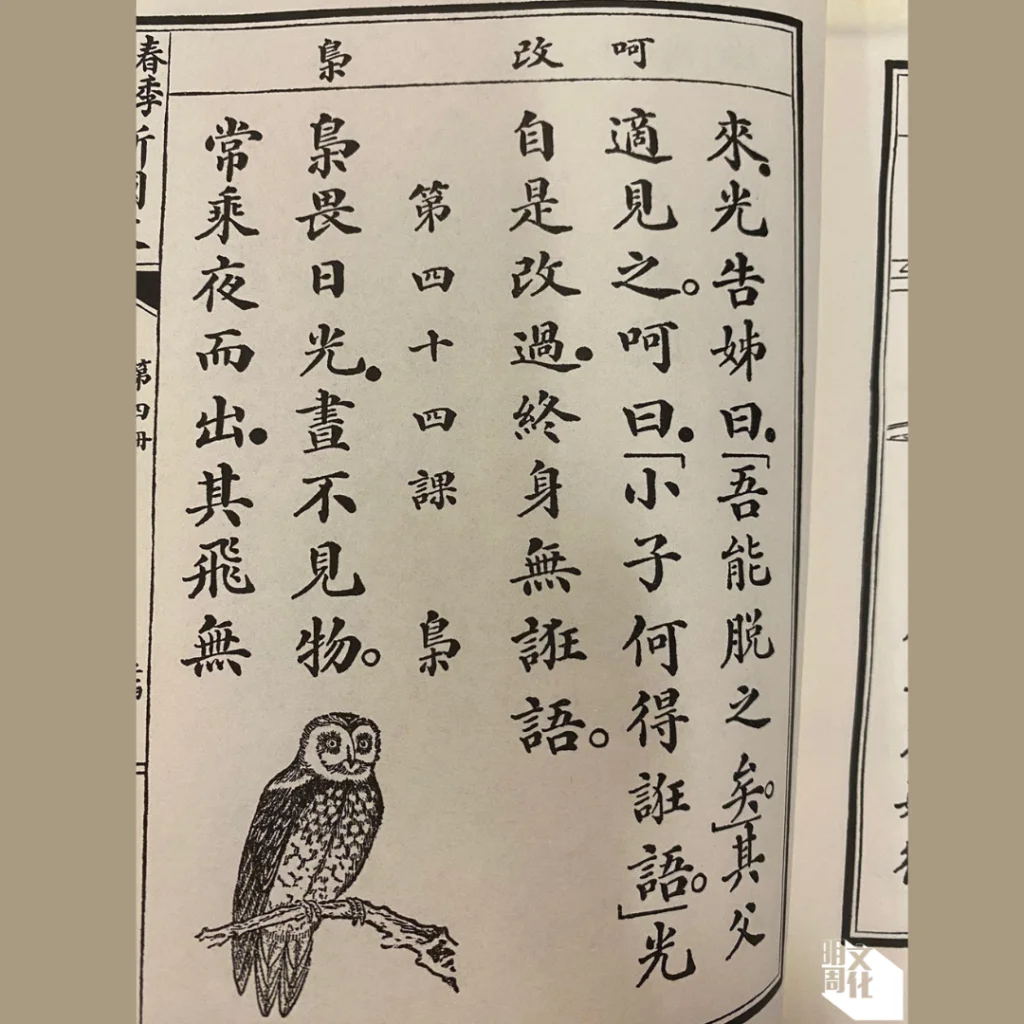 呵 改 梟
來.光告姊曰.「吾能脱之矣。」其父
適見之。呵曰.「小子何得誑語。」光
自是改過.終身無誑語。
第四十四課 梟
梟畏日光.晝不見物。
常乘夜而出.其飛無
春季
第四册
明周文化